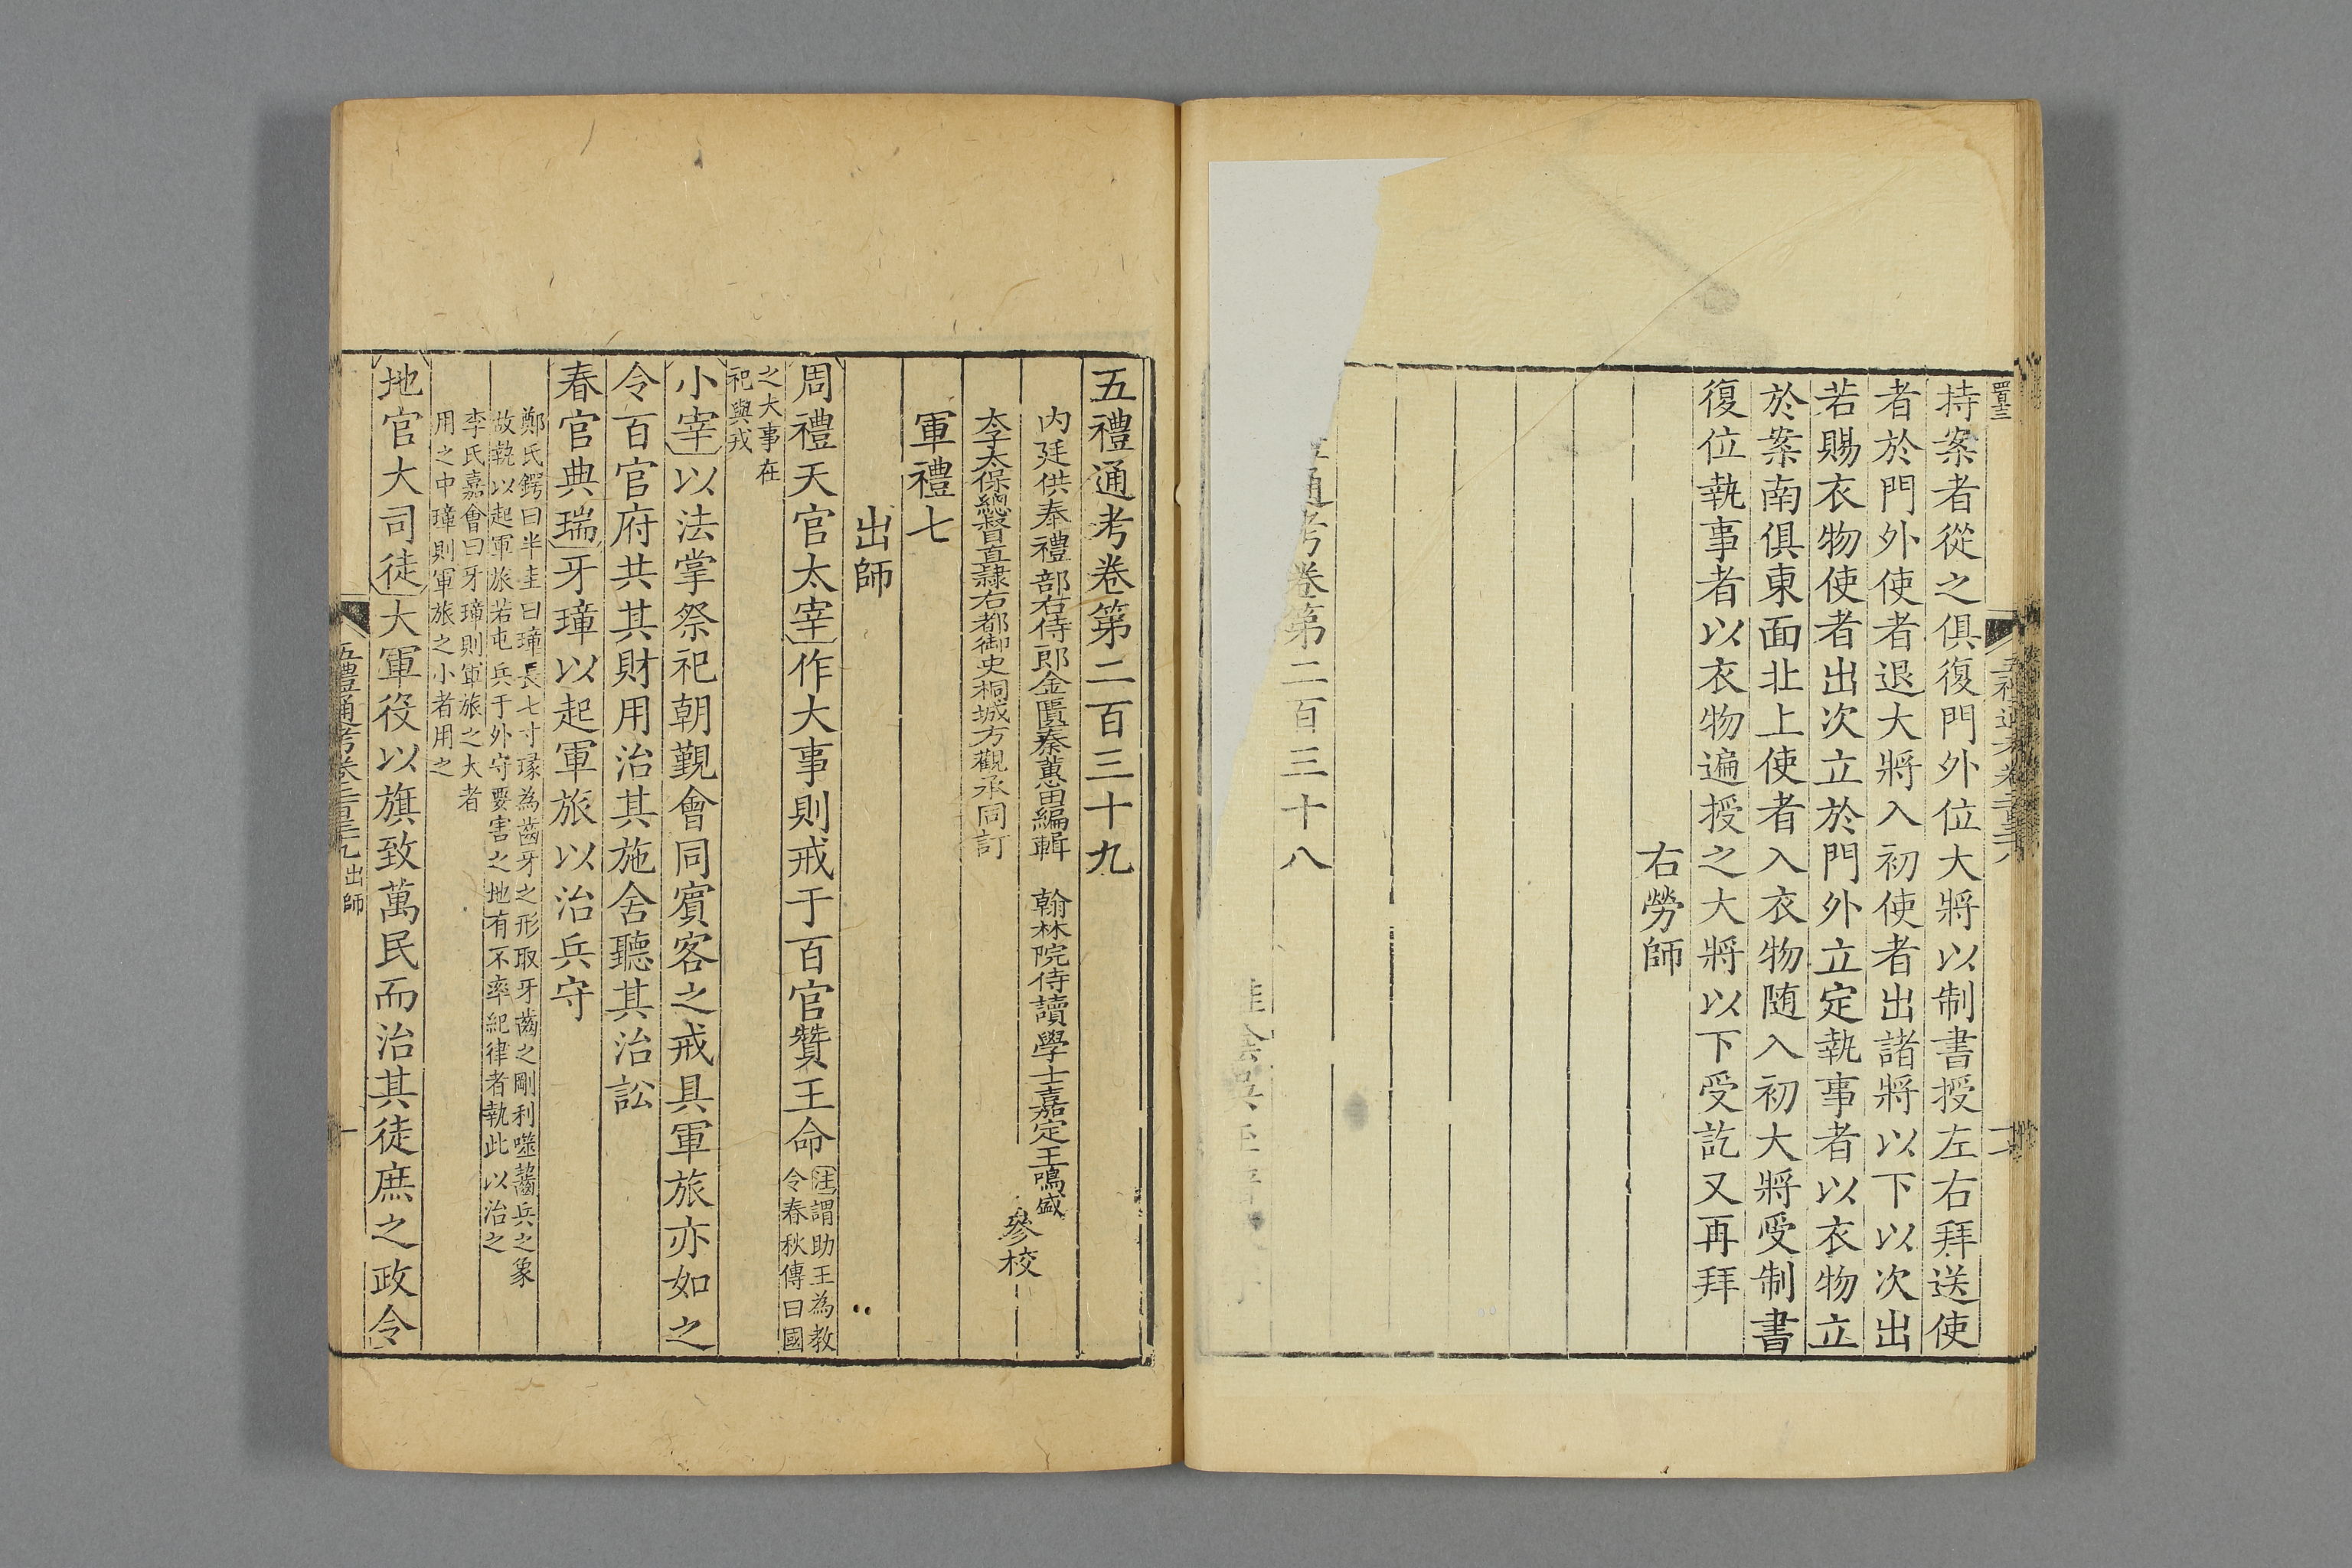 持案者從之俱復門外位大將以制書授左右拜送使
者於門外使者退大將入初使者出諸將以下以次出
若賜衣物使者出次立於門外立定執事者以衣物立
於案南俱東面北上使者入衣物随入初大將受制書
復位執事者以衣物遍授之大將以下受訖又再拜
右勞師
通考卷第二百三十八
五禮通考卷第二百三十九
内廷供奉禮部右侍郎金匱秦蕙田編輯 翰林院侍讀學士嘉定王鳴盛
太子太保總督直隸右都御史桐城方觀承同訂
參校
軍禮七
出師
周禮天官太宰作大事則戒于百官贊王命注謂助王為教
令春秋傳曰國
之大事在
祀與戎
小宰以法掌祭祀朝覲會同賓客之戒具軍旅亦如之
令百官府共其財用治其施舍聽其治訟
春官典瑞牙璋以起軍旅以治兵守
鄭氏鍔曰半圭曰璋長七寸瑑為齒牙之形取牙齒之剛利噬齧兵之象
故執以起軍旅若屯兵于外守要害之地有不率紀律者執此以治之
李氏嘉會曰牙璋則軍旅之大者
用之中璋則軍旅之小者用之
地官大司徒大軍役以旗致萬民而治其徒庶之政令
五禮通考卷二百三十九 出師
一